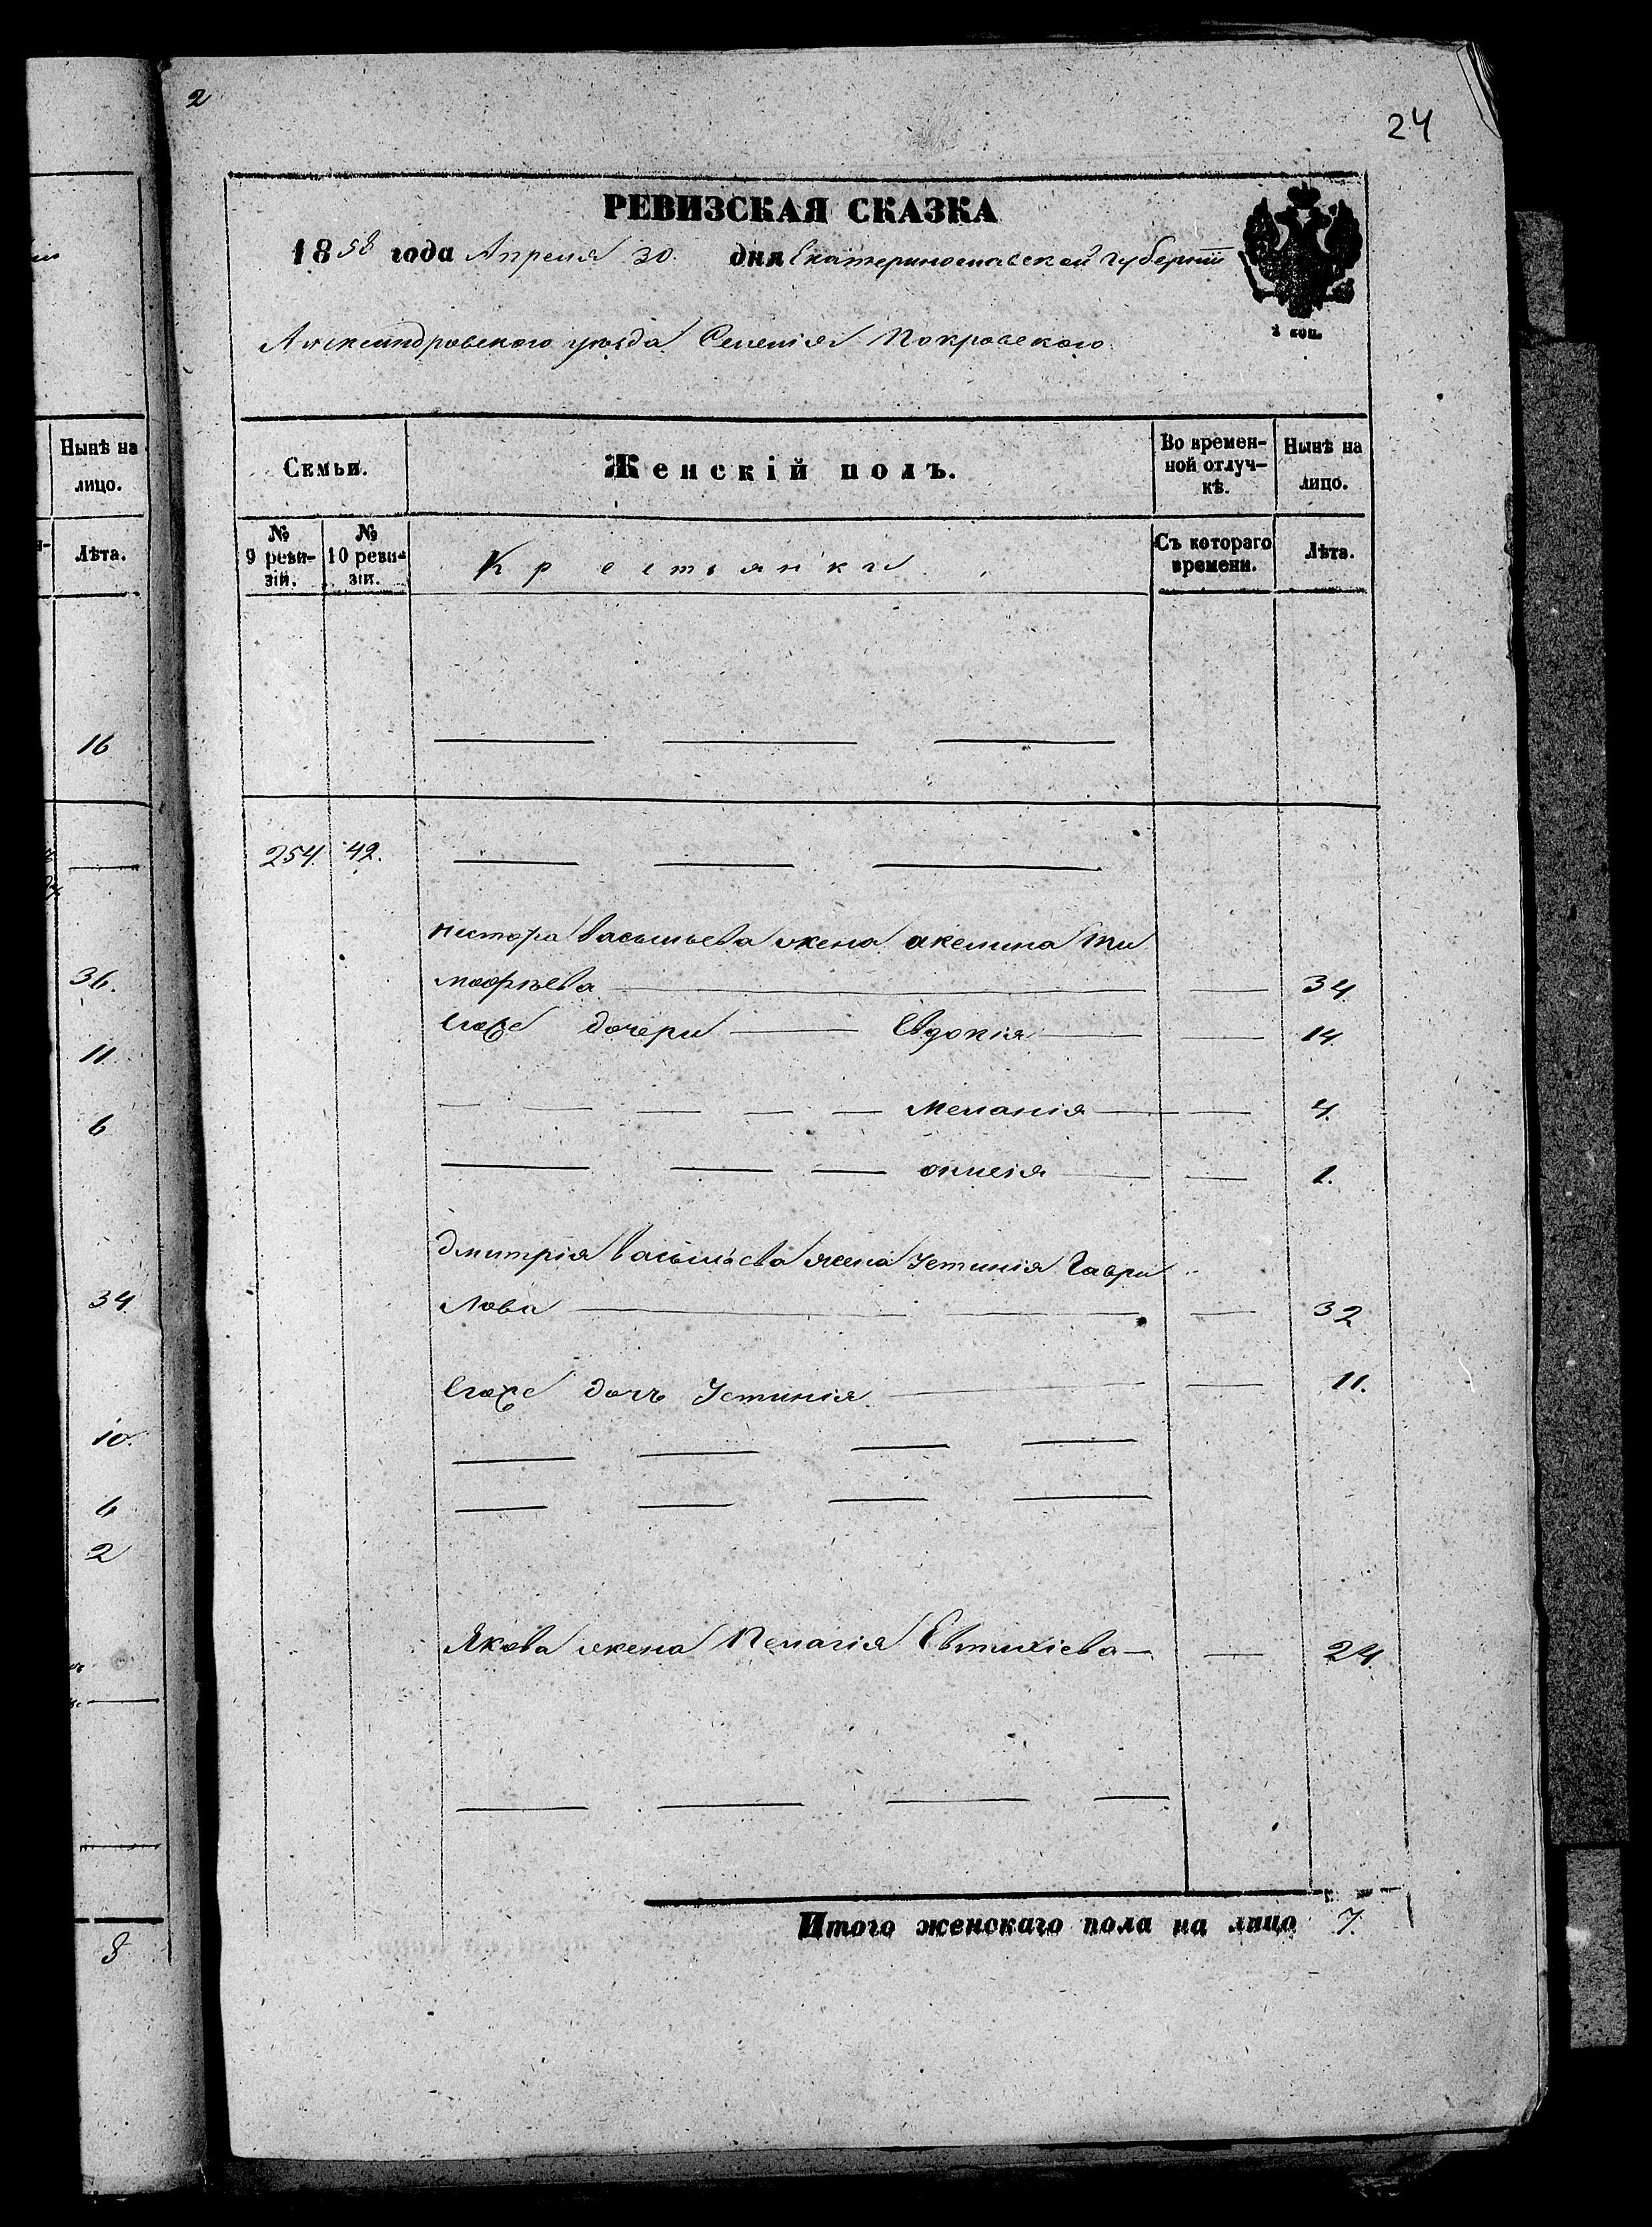 2
24
РЕВИЗСКАЯ СКАЗКА
1858 года Апреля 30. дня Екатеринославской губерніи
2 коп.
Александровского уѣзда Селенія Покровского
Нынѣ на лицо.
Лѣта.
16
36.
11.
6
34
10.
6
2
8
Семьи.
Женскій полъ.
Во временной отлучкѣ.
Нынѣ на лицо.
№ 9 ревизіи.
№ 10 ревизіи.
Крестьянки
Съ котораго времени.
Лѣта.
254. 42.
Нестора Васильева жена акелина Ти
мофѣева 34
Егоже дочери Евдокія 14.
Меланія 4.
1.
Дмитрія Васильева жена Устинія Гаври
лова 32
Егоже дочь Устинія. 11.
Якова жена Пелагія Евтихіева 24.
Итого женскаго пола на лицо 7.